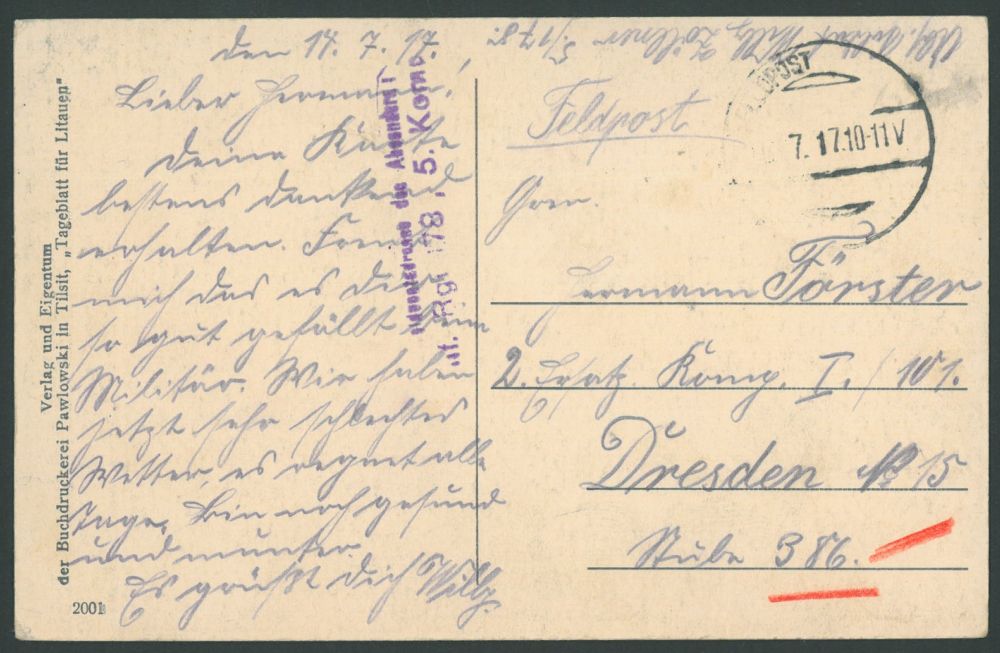 den 17. 7. 17.
Lieber Hermann!
Deine Karte
bestens dankend
erhalten. Freut
mich das es dir
so gut gefällt beim
Militär. Wir haben
jetzt sehr schlechtes
Wetter, es regnet alle
Tage. Bin noch gesund
und munter.
Es grüßt dich Willy.
Feldpost
7. 17.10-11V
Gren.
Hermann Förster
2. Ersatz. Komp. I. / 101.
Dresden № 15
Stube 386.
des Absenders!
Rgt 178, 5. Komp.
Verlag und Eigentum
der Buchdruckerei Pawlowski in Tilsit, „Tageblatt für Litauen"
2001